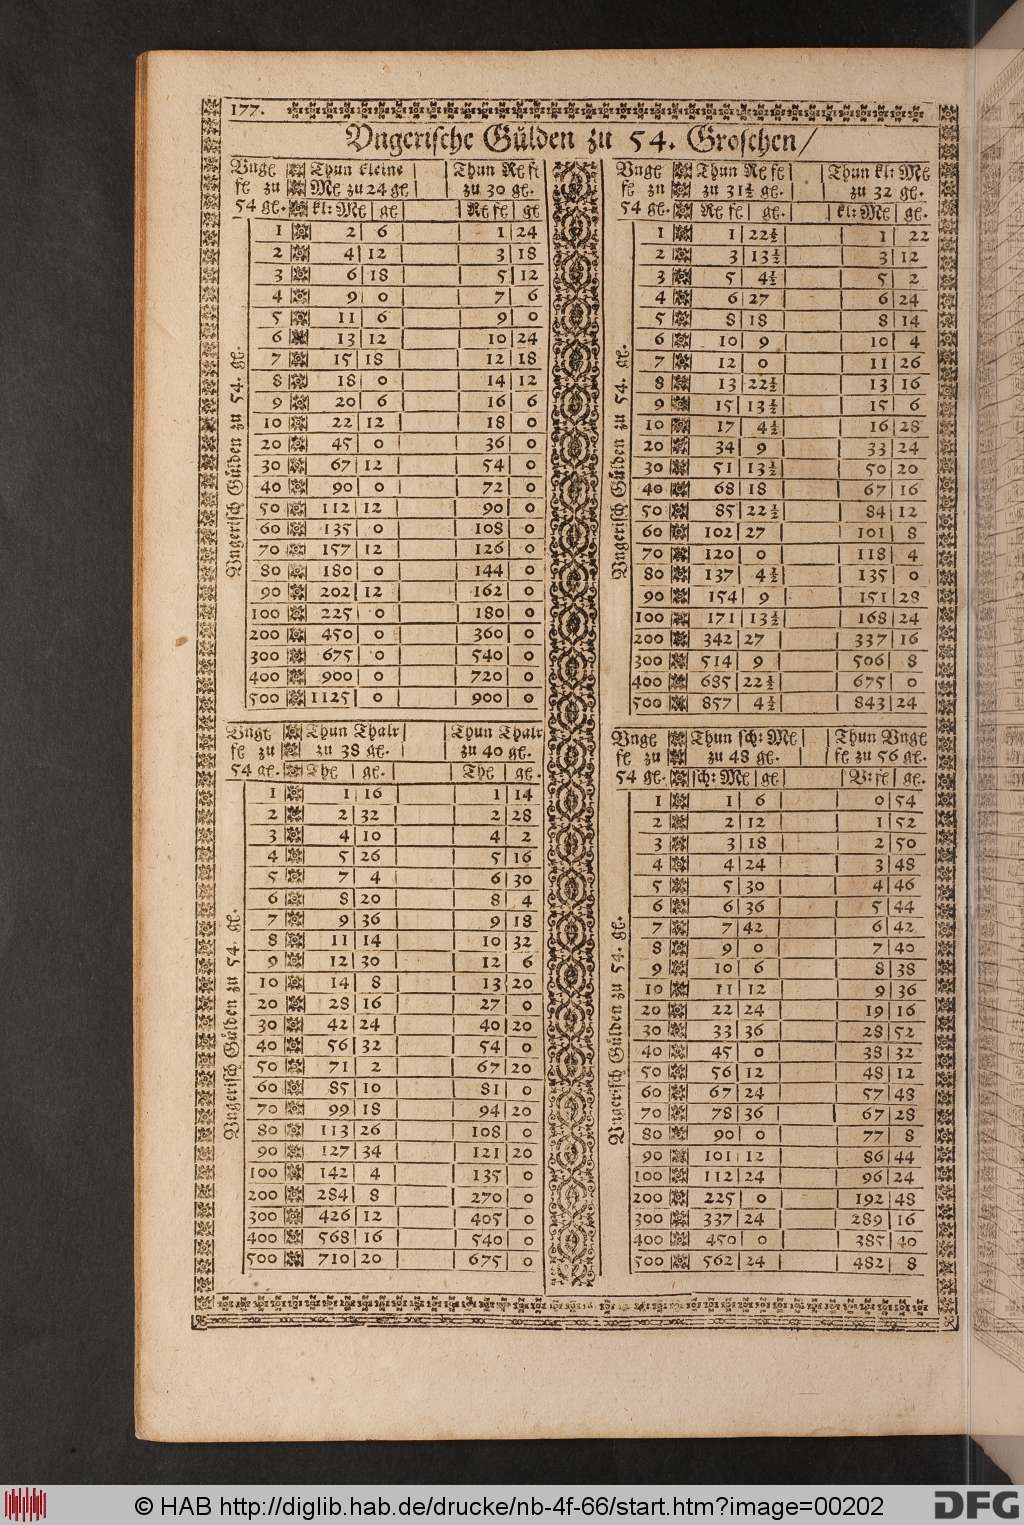 177.
Vngerische Gülden zu 54. Groschen/
Vngl Thun kleine Thun Re fl
fe zu Ml zu 24 gl zu 30 gl.
54 gl. kl: Ml gl Re fl gl
1 2 6 1 24
2 4 12 3 18
3 6 18 5 12
4 9 0 7 6
5 11 6 9 0
6 13 12 10 24
7 15 18 12 18
8 18 0 14 12
9 20 6 16 6
10 22 12 18 0
20 45 0 36 0
30 67 12 54 0
40 90 0 72 0
50 112 12 90 0
60 135 0 108 0
70 157 12 126 0
80 180 0 144 0
90 202 12 162 0
100 225 0 180 0
200 450 0 360 0
300 675 0 540 0
400 900 0 720 0
500 1125 0 900 0
Vngerisch Gülden zu 54. gl.
Vngl Thun Re fl Thun kl: Ml
fl zu zu 31½ gl. zu 32 gl.
54 gl. Re fl gl. kl: Ml gl.
1 1 22½ 1 22
2 3 13½ 3 12
3 5 4½ 5 2
4 6 27 6 24
5 8 18 8 14
6 10 9 10 4
7 12 0 11 26
8 13 22½ 13 16
9 15 13½ 15 6
10 17 4½ 16 28
20 34 9 33 24
30 51 13½ 50 20
40 68 18 67 16
50 85 22½ 84 12
60 102 27 101 8
70 120 0 118 4
80 137 4½ 135 0
90 154 9 151 28
100 171 13½ 168 24
200 342 27 337 16
300 514 9 506 8
400 685 22½ 675 0
500 857 4½ 843 24
Vngerisch Gülden zu 54. gl.
Vngl Thun Thalr Thun Thalr
fe zu zu 38 gl. zu 40 gl.
54 gl. Thl gl. Thl gl.
1 1 16 1 14
2 2 32 2 28
3 4 10 4 2
4 5 26 5 16
5 7 4 6 30
6 8 20 8 4
7 9 36 9 18
8 11 14 10 32
9 12 30 12 6
10 14 8 13 20
20 28 16 27 0
30 42 24 40 20
40 56 32 54 0
50 71 2 67 20
60 85 10 81 0
70 99 18 94 20
80 113 26 108 0
90 127 34 121 20
100 142 4 135 0
200 284 8 270 0
300 426 12 405 0
400 568 16 540 0
500 710 20 675 0
Vngerisch Gülden zu 54. gl.
Vngl Thun sch: Ml Thun Vngl
fe zu zu 48 gl. fe zu 56 gl.
54 gl. sch: Ml gl V: fl gl.
1 1 6 0 54
2 2 12 1 52
3 3 18 2 50
4 4 24 3 48
5 5 30 4 46
6 6 36 5 44
7 7 42 6 42
8 9 0 7 40
9 10 6 8 38
10 11 12 9 36
20 22 24 19 16
30 33 36 28 52
40 45 0 38 32
50 56 12 48 12
60 67 24 57 48
70 78 36 67 28
80 90 0 77 8
90 101 12 86 44
100 112 24 96 24
200 225 0 192 48
300 337 24 289 16
400 450 0 385 40
500 562 24 482 8
Vngerisch Gülden zu 54. gl.
© HAB http://diglib.hab.de/drucke/nb-4f-66/start.htm?image=00202
DFG